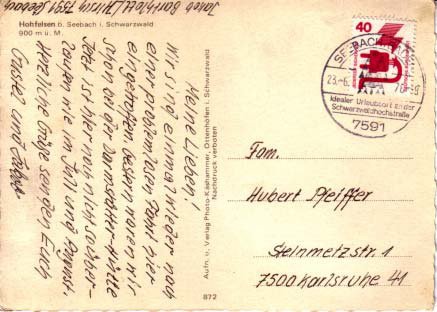 Hohfelsen b. Seebach i. Schwarzwald
900 m ü. M.
Meine Lieben!
Wir sind einmal wieder nach
einer problemlosen Fahrt hier
eingetroffen. Gestern waren wir
schon bei der Darmstädter-Hütte
Jetzt ist hier noch nicht so über-
laufen wie im Juli und August.
Herzliche Grüße senden Euch
Aufn. u. Verlag Photo-Kaphammer, Ottenhöfen i. Schwarzwald
Nachdruck verboten
872
40
SEEBACH
23.-6.
Idealer Urlaubsort an der
Schwarzwaldhochstraße
7591
Fam.
Hubert Pfeiffer
Steinmetzstr. 1
7500 Karlsruhe 41